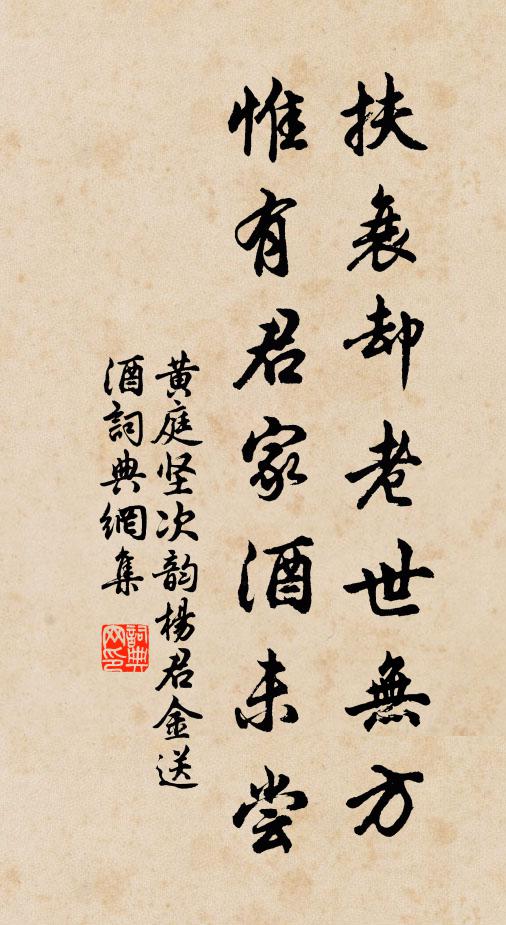 扶衰却老世無方
惟有君家酒未尝
黄庭坚次韵楊君金送
酒詞典網集
詞典
网印